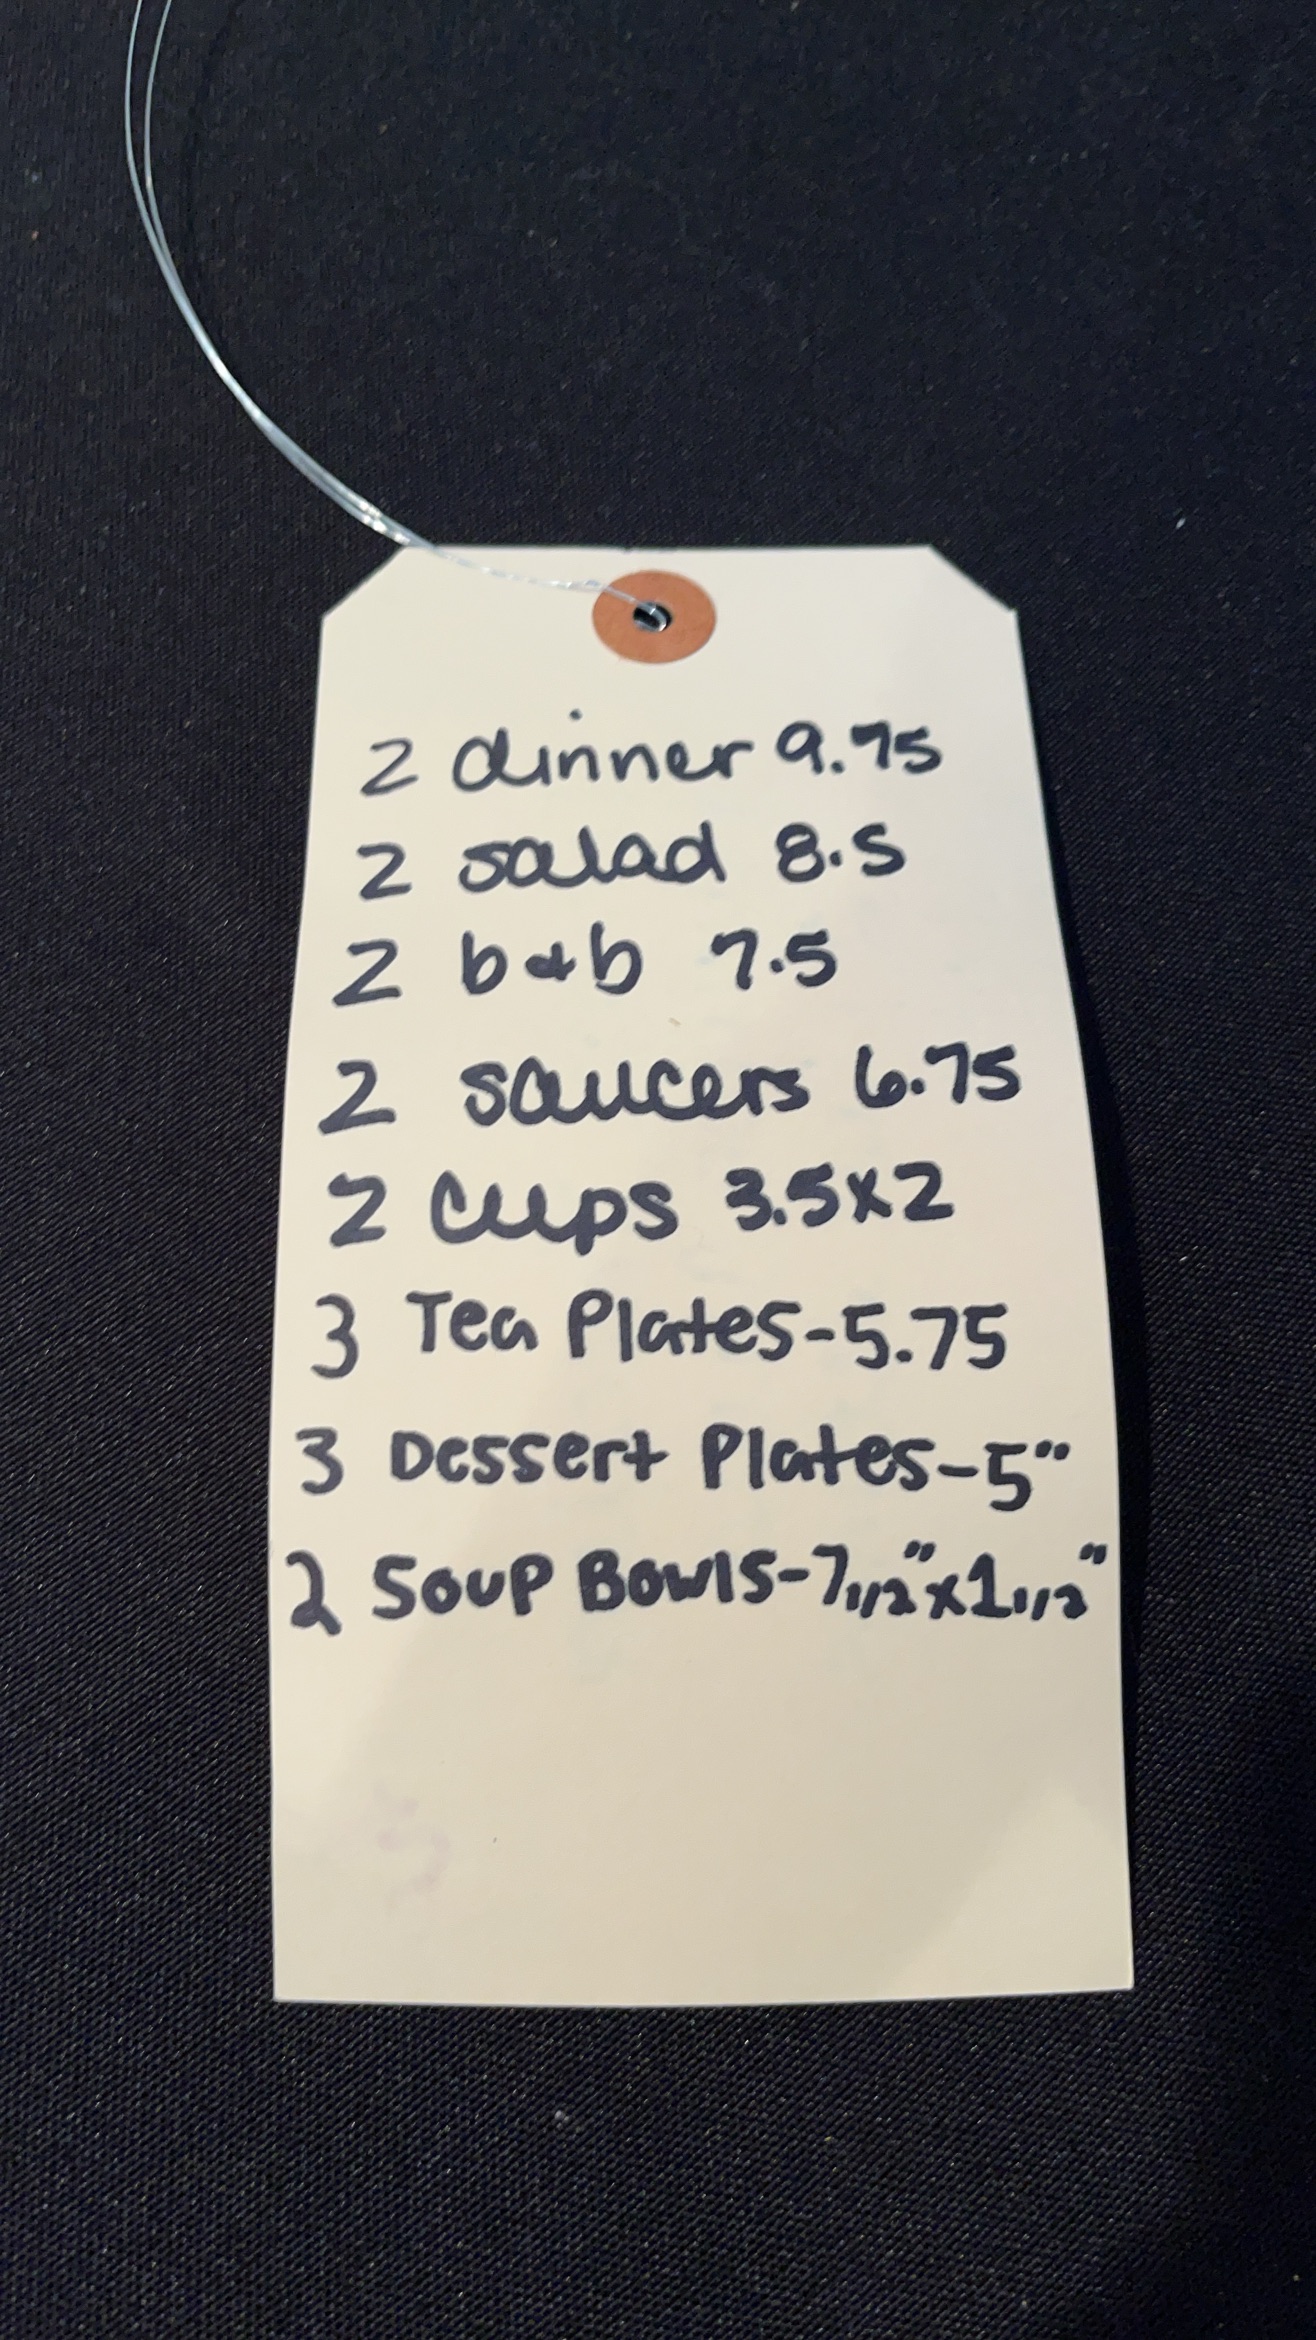 2 dinner 9.75
2 salad 8.5
2 b&b 7.5
2 saucers 6.75
2 cups 3.5x2
3 Tea Plates-5.75
3 Dessert Plates-5"
2 Soup Bowls-7 1/2"x1 1/2"